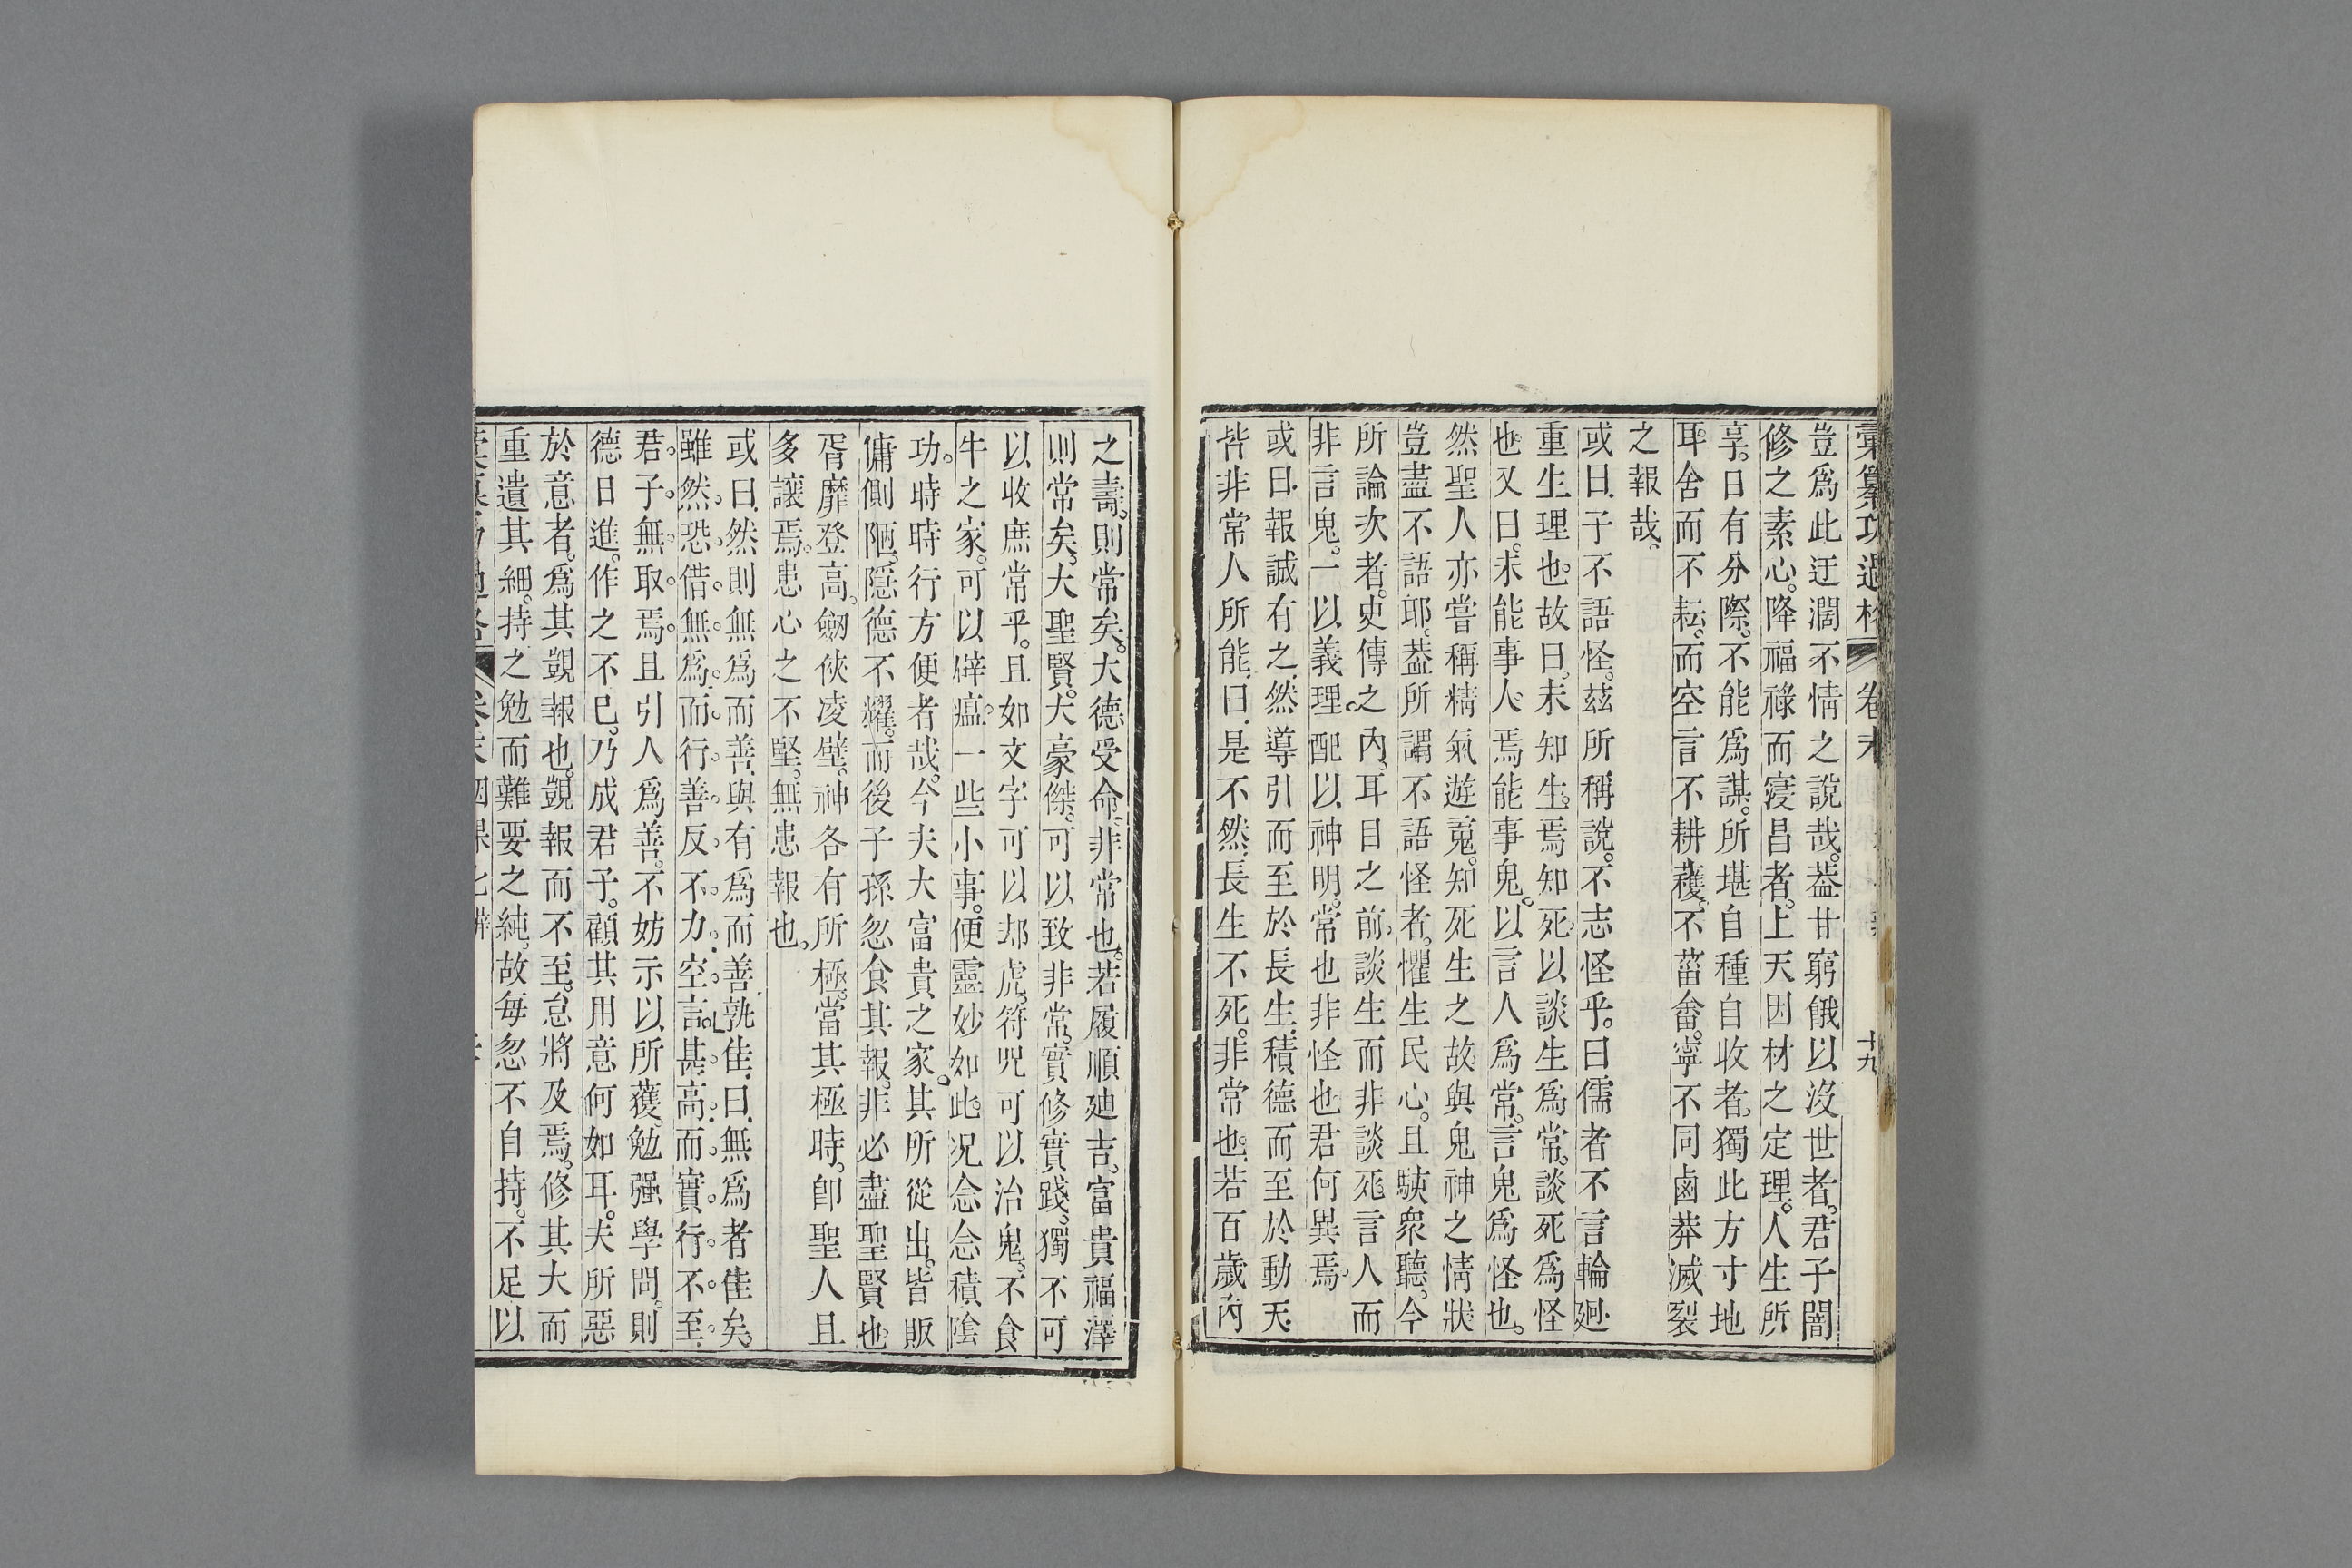 彙纂功過格 卷末 十九
豈爲此迂濶不情之說哉。葢甘窮餓以沒世者。君子闇
修之素心。降福祿而寖昌者。上天因材之定理。人生所
享。日有分際。不能爲謀。所堪自種自收者。獨此方寸地
耳。舍而不耘。而空言不耕穫。不菑畬。寧不同鹵莽滅裂
之報哉。
或曰。子不語怪。茲所稱說。不志怪乎。曰儒者不言輪廻。
重生理也。故曰。未知生。焉知死。以談生爲常。談死爲怪
也。又曰。未能事人。焉能事鬼。以言人爲常。言鬼爲怪也。
然聖人亦嘗稱精氣遊䰟。知死生之故。與鬼神之情狀。
豈盡不語耶。葢所謂不語怪者。懼生民心。且駭衆聽。今
所論次者。史傳之內。耳目之前。談生而非談死。言人而
非言鬼。一以義理。配以神明。常也非怪也。君何異焉。
或曰。報誠有之。然導引而至於長生。積德而至於動天。
皆非常人所能。曰。是不然。長生不死。非常也。若百歲內
之壽。則常矣。大德受命。非常也。若履順廸吉。富貴福澤
則常矣。大聖賢。大豪傑。可以致非常。實修實踐。獨不可
以收庶常乎。且如文字可以却虎。符咒可以治鬼。不食
牛之家。可以辟瘟。一些小事。便靈妙如此。况念念積陰
功。時時行方便者哉。今夫大富貴之家。其所從出。皆販
傭側陋。隱德不耀。而後子孫忽食其報。非必盡聖賢也。
胥靡登高。劒俠凌壁。神各有所極。當其極時。卽聖人且
多讓焉。患心之不堅。無患報也。
或曰。然則無爲而善。與有爲而善孰佳。曰。無爲者佳矣。
雖然。恐借無爲。而行善反不力。空言甚高。而實行不至。
君子無取焉。且引人爲善。不妨示以所獲。勉强學問。則
德日進。作之不已。乃成君子。顧其用意何如耳。夫所惡
於意者。爲其覬報也。覬報而不至。怠將及焉。修其大而
重遺其細。持之勉而難要之純。故每忽不自持。不足以